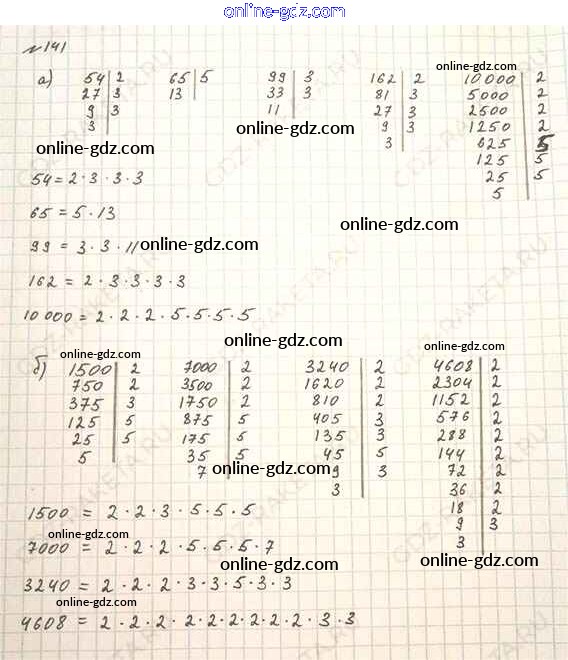 online-gdz.com
№ 141
а) 54 | 2 65 | 5 99 | 3 162 | 2 10 000 | 2
27 | 3 13 33 | 3 81 | 3 5000 | 2
9 | 3 11 27 | 3 2500 | 2
3 9 | 3 1250 | 2
3 625 | 5
125 | 5
25 | 5
5
online-gdz.com
online-gdz.com
online-gdz.com
54 = 2 · 3 · 3 · 3
65 = 5 · 13
online-gdz.com
99 = 3 · 3 · 11
online-gdz.com
162 = 2 · 3 · 3 · 3 · 3
10 000 = 2 · 2 · 2 · 5 · 5 · 5 · 5
online-gdz.com
online-gdz.com
б) 1500 | 2 7000 | 2 3240 | 2 4608 | 2
750 | 2 3500 | 2 1620 | 2 2304 | 2
375 | 3 1750 | 2 810 | 2 1152 | 2
125 | 5 875 | 5 405 | 3 576 | 2
25 | 5 175 | 5 135 | 3 288 | 2
5 35 | 5 45 | 5 144 | 2
7 9 | 3 72 | 2
3 36 | 2
18 | 2
9 | 3
3
online-gdz.com
1500 = 2 · 2 · 3 · 5 · 5 · 5
online-gdz.com
7000 = 2 · 2 · 2 · 5 · 5 · 5 · 7
online-gdz.com
online-gdz.com
3240 = 2 · 2 · 2 · 3 · 3 · 5 · 3 · 3
online-gdz.com
4608 = 2 · 2 · 2 · 2 · 2 · 2 · 2 · 2 · 2 · 3 · 3
GDZ-RAKETA.RU